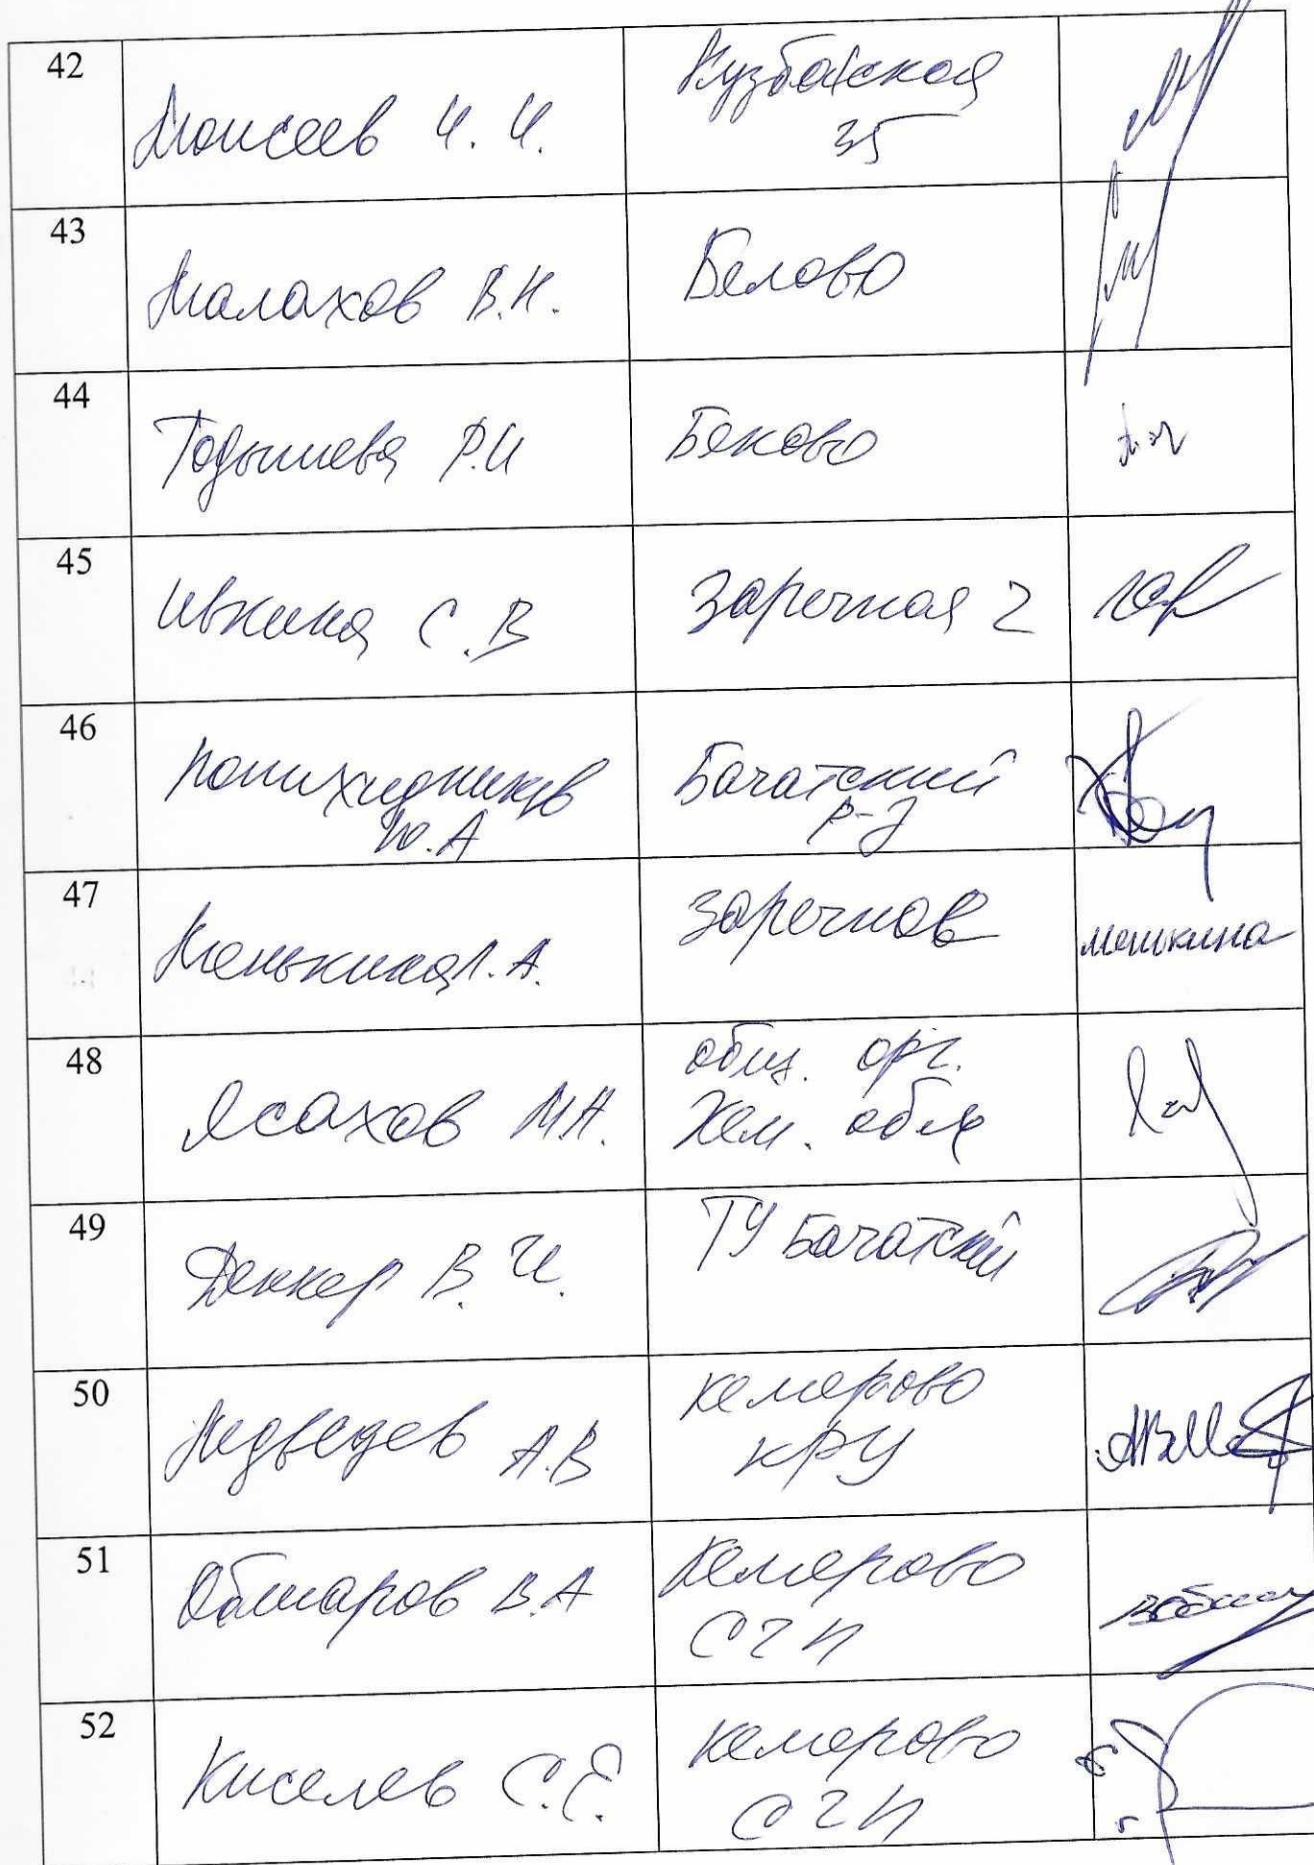 42
Моисеев И. И.
Кузбасская
35
43
Малахов В.Н.
Белово
44
Тодышева Р.И
Беково
45
Ивкина С.В
Заречная 2
46
Понихидников
Ю.А
Бачатский
р-з
47
Менькина Л.А.
Заречная
менькина
48
Ясахов М.Н.
общ. орг.
Кем. обл
49
Деккер В.И.
ТУ Бачатский
50
Медведев А.В
Кемерово
КРУ
51
Обшаров В.А
Кемерово
СГИ
52
Киселев С.Е.
Кемерово
СГИ